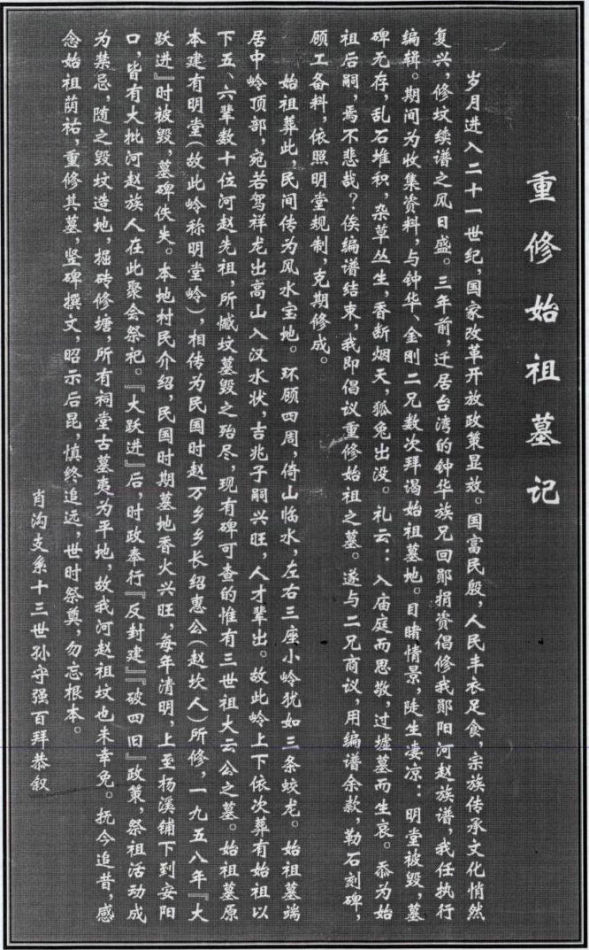 重修始祖墓记
岁月进入二十一世纪，国家改革开放政策显效。国富民殷，人民丰衣足食，宗族传承文化悄然
复兴，修坟续谱之风日盛。三年前，迁居台湾的钟华族兄回郧捐资倡修我郧阳河赵族谱，我任执行
编辑。期间为收集资料，与钟华、金刚二兄数次拜谒始祖墓地。目睹情景，陡生凄凉：明堂被毁，墓
碑无存，乱石堆积，杂草丛生，香断烟灭，狐兔出没。礼云：入庙庭而思敬，过墟墓而生哀。忝为始
祖后嗣，焉不悲哉？俟编谱结束，我即倡议重修始祖之墓。遂与二兄商议，用编谱余款，勒石刻碑，
顾工备料，依照明堂规制，克期修成。
始祖葬此，民间传为风水宝地。环顾四周，倚山临水，左右三座小岭犹如三条蛟龙。始祖墓端
居中岭顶部，宛若驾祥龙出高山入汉水状，吉兆子嗣兴旺，人才辈出。故此岭上下依次葬有始祖以
下五、六辈数十位河赵先祖，所憾坟墓毁之殆尽，现有碑可查的惟有三世祖大云公之墓。始祖墓原
本建有明堂（故此岭称明堂岭），相传为民国时赵万乡乡长绍惠公（赵坎人）所修，一九五八年『大
跃进』时被毁，墓碑佚失。本地村民介绍，民国时期墓地香火兴旺，每年清明，上至杨溪铺下到安阳
口，皆有大批河赵族人在此聚会祭祀。『大跃进』后，时政奉行『反封建』『破四旧』政策，祭祖活动成
为禁忌，随之毁坟造地，掘砖修塘，所有祠堂古墓夷为平地，故我河赵祖坟也未幸免。抚今追昔，感
念始祖荫祐，重修其墓，竖碑撰文，昭示后昆，慎终追远，世时祭奠，勿忘根本。
肖沟支系十三世孙守强百拜恭叙